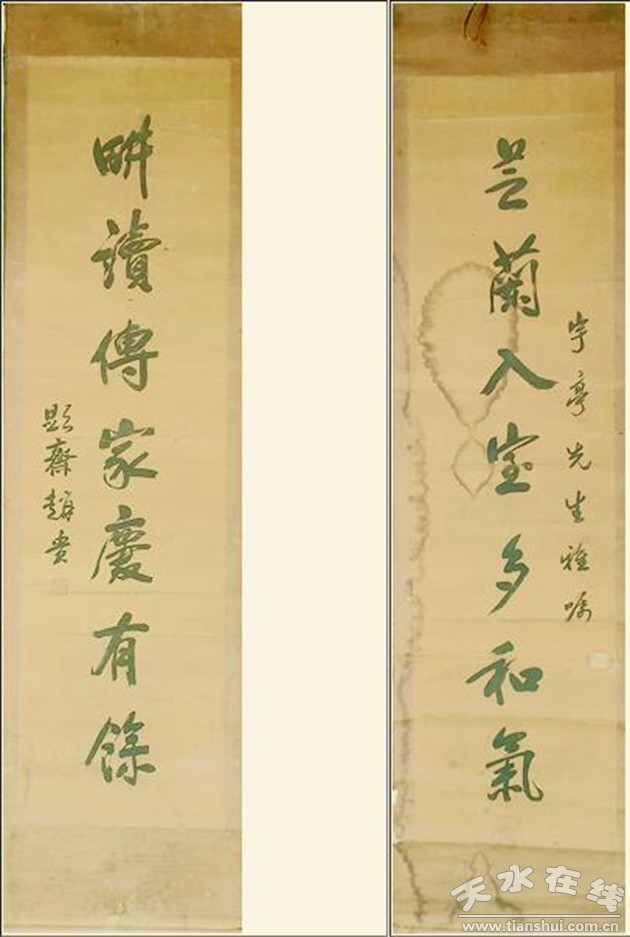 宇亭先生雅嘱
芝蘭入室多和氣
畊讀傳家慶有餘
顕齋趙貴
天水在线
www.tianshui.com.cn